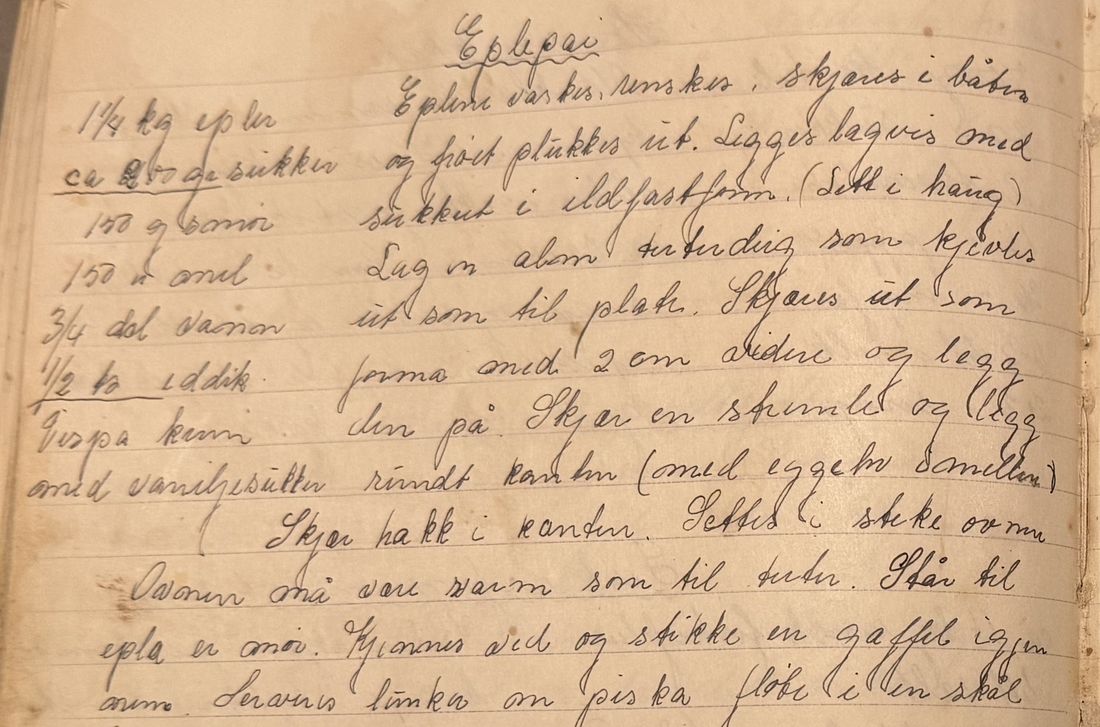 Eplepai
1 1/4 kg epler Eplene vaskes, renskes, skjæres i båter
ca 200 g sukker og frøet plukkes ut. Legges lagvis med
150 g smør sukkeret i ildfastform. (Sett i haug)
150 " mel Lag en alm terterdeig som kjevles
3/4 dl vann ut som til plate. Skjæres ut som
1/2 ts eddik. forma med 2 cm videre og legg
Vispa krem den på. Skjær en strimle og legg
med vaniljesukker rundt kanten (med eggehv imellem)
Skjær hakk i kanten. Settes i steke ovnen
Ovnen må være varm som til terter. Står til
epla er mør. Kjennes ved og stikke en gaffel igjen
nem. Serveres lunka en piska fløte i en skål